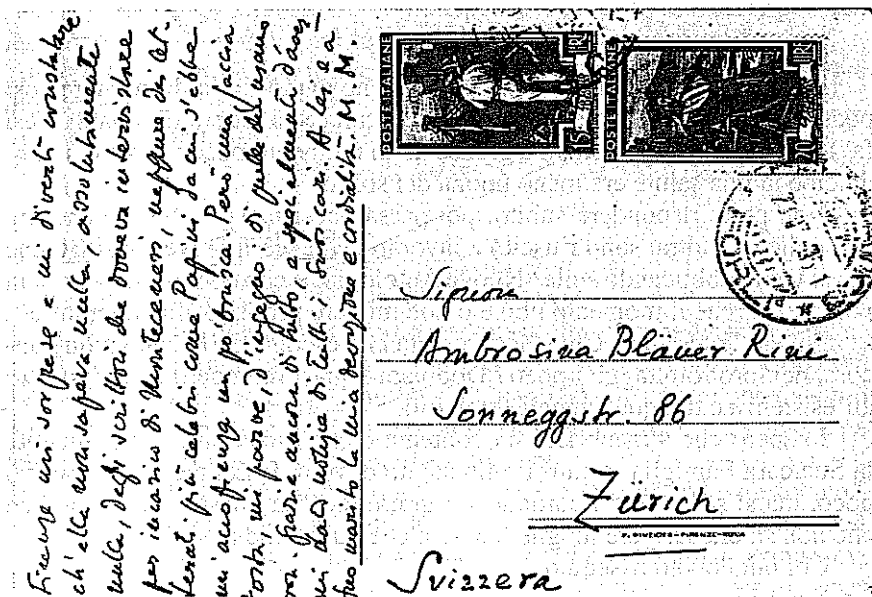 Firenze mi sorprese e mi divertì constatare
ch'ella non sapeva nulla, assolutamente
nulla, degli scrittori che doveva intervistare
per incarico di Monteceneri, neppure dei let-
terati più celebri come Papini da cui s'ebbe
un'accoglienza un po' brusca. Però una faccia
tosta, mi parve, d'ingegno di quelle che usano
ora. Grazie ancora di tutto, e specialmente d'aver
mi dato notizia di tutti i suoi cari. A lei e a
suo marito la mia devozione e cordialità. M. M.
POSTE ITALIANE
LIRE
15
POSTE ITALIANE
LIRE
20
Signora
Ambrosina Blauer Rini
Sonneggstr. 86
Zürich
Svizzera